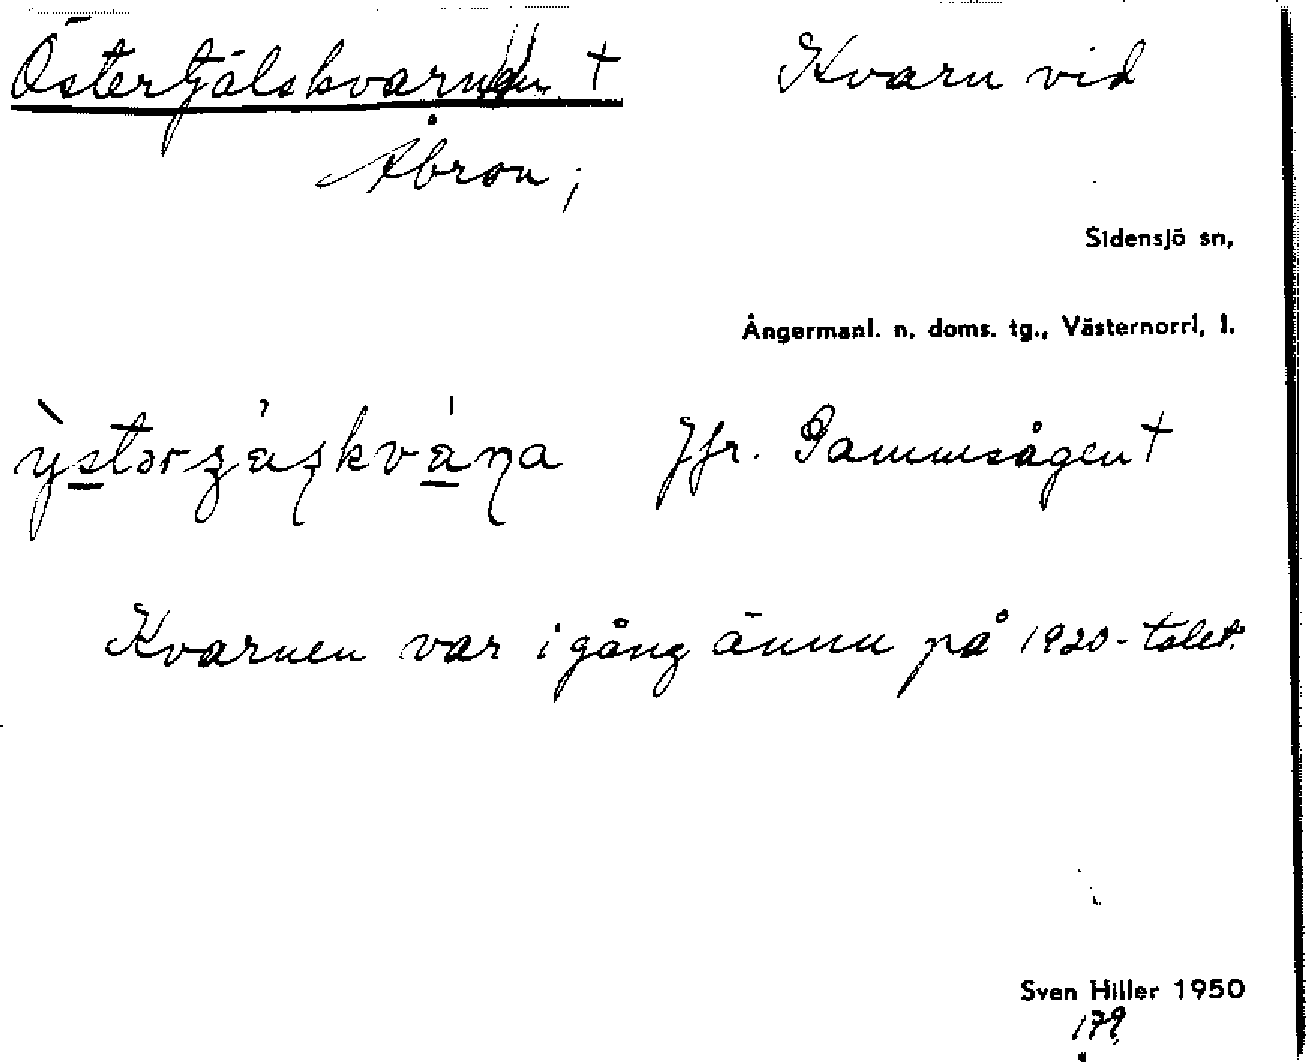 Östertjälskvarnen † Kvarn vid
Åbron;
Sidensjö sn,
Ångermanl. n. doms. tg., Västernorrl, l.
Jfr. Dammsågen †
Kvarnen var i gång ännu på 1920-talet.
Sven Hiller 1950
179